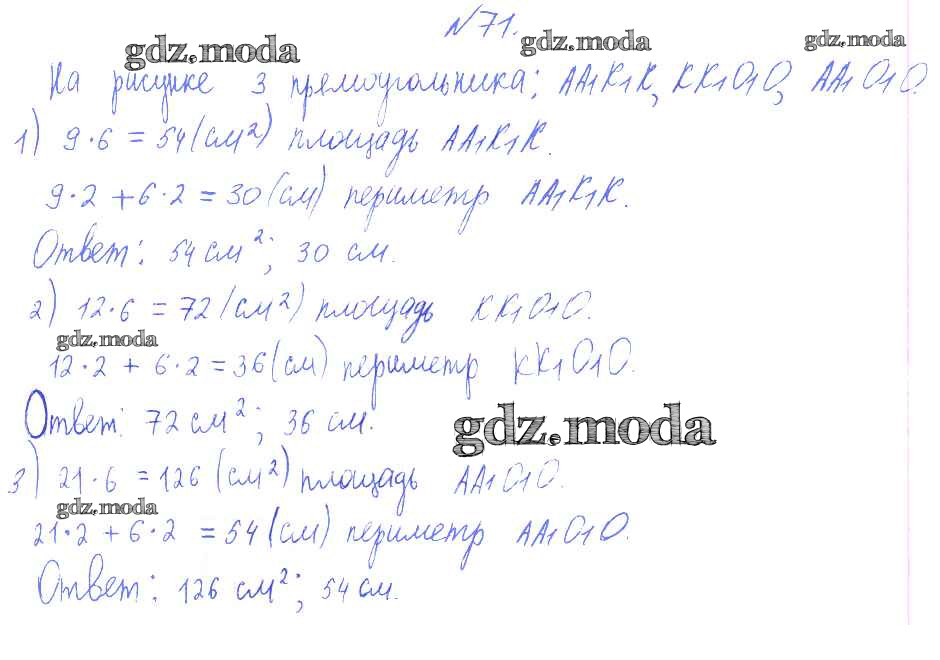 №71.
gdz.moda gdz.moda gdz.moda
На рисунке 3 прямоугольника: АА₁К₁К, КК₁О₁О, АА₁О₁О.
1) 9·6 = 54 (см²) площадь АА₁К₁К.
9·2 + 6·2 = 30 (см) периметр АА₁К₁К.
Ответ: 54 см²; 30 см.
2) 12·6 = 72 (см²) площадь КК₁О₁О.
gdz.moda
12·2 + 6·2 = 36 (см) периметр КК₁О₁О.
Ответ: 72 см²; 36 см.
gdz.moda
3) 21·6 = 126 (см²) площадь АА₁О₁О.
gdz.moda
21·2 + 6·2 = 54 (см) периметр АА₁О₁О.
Ответ: 126 см²; 54 см.